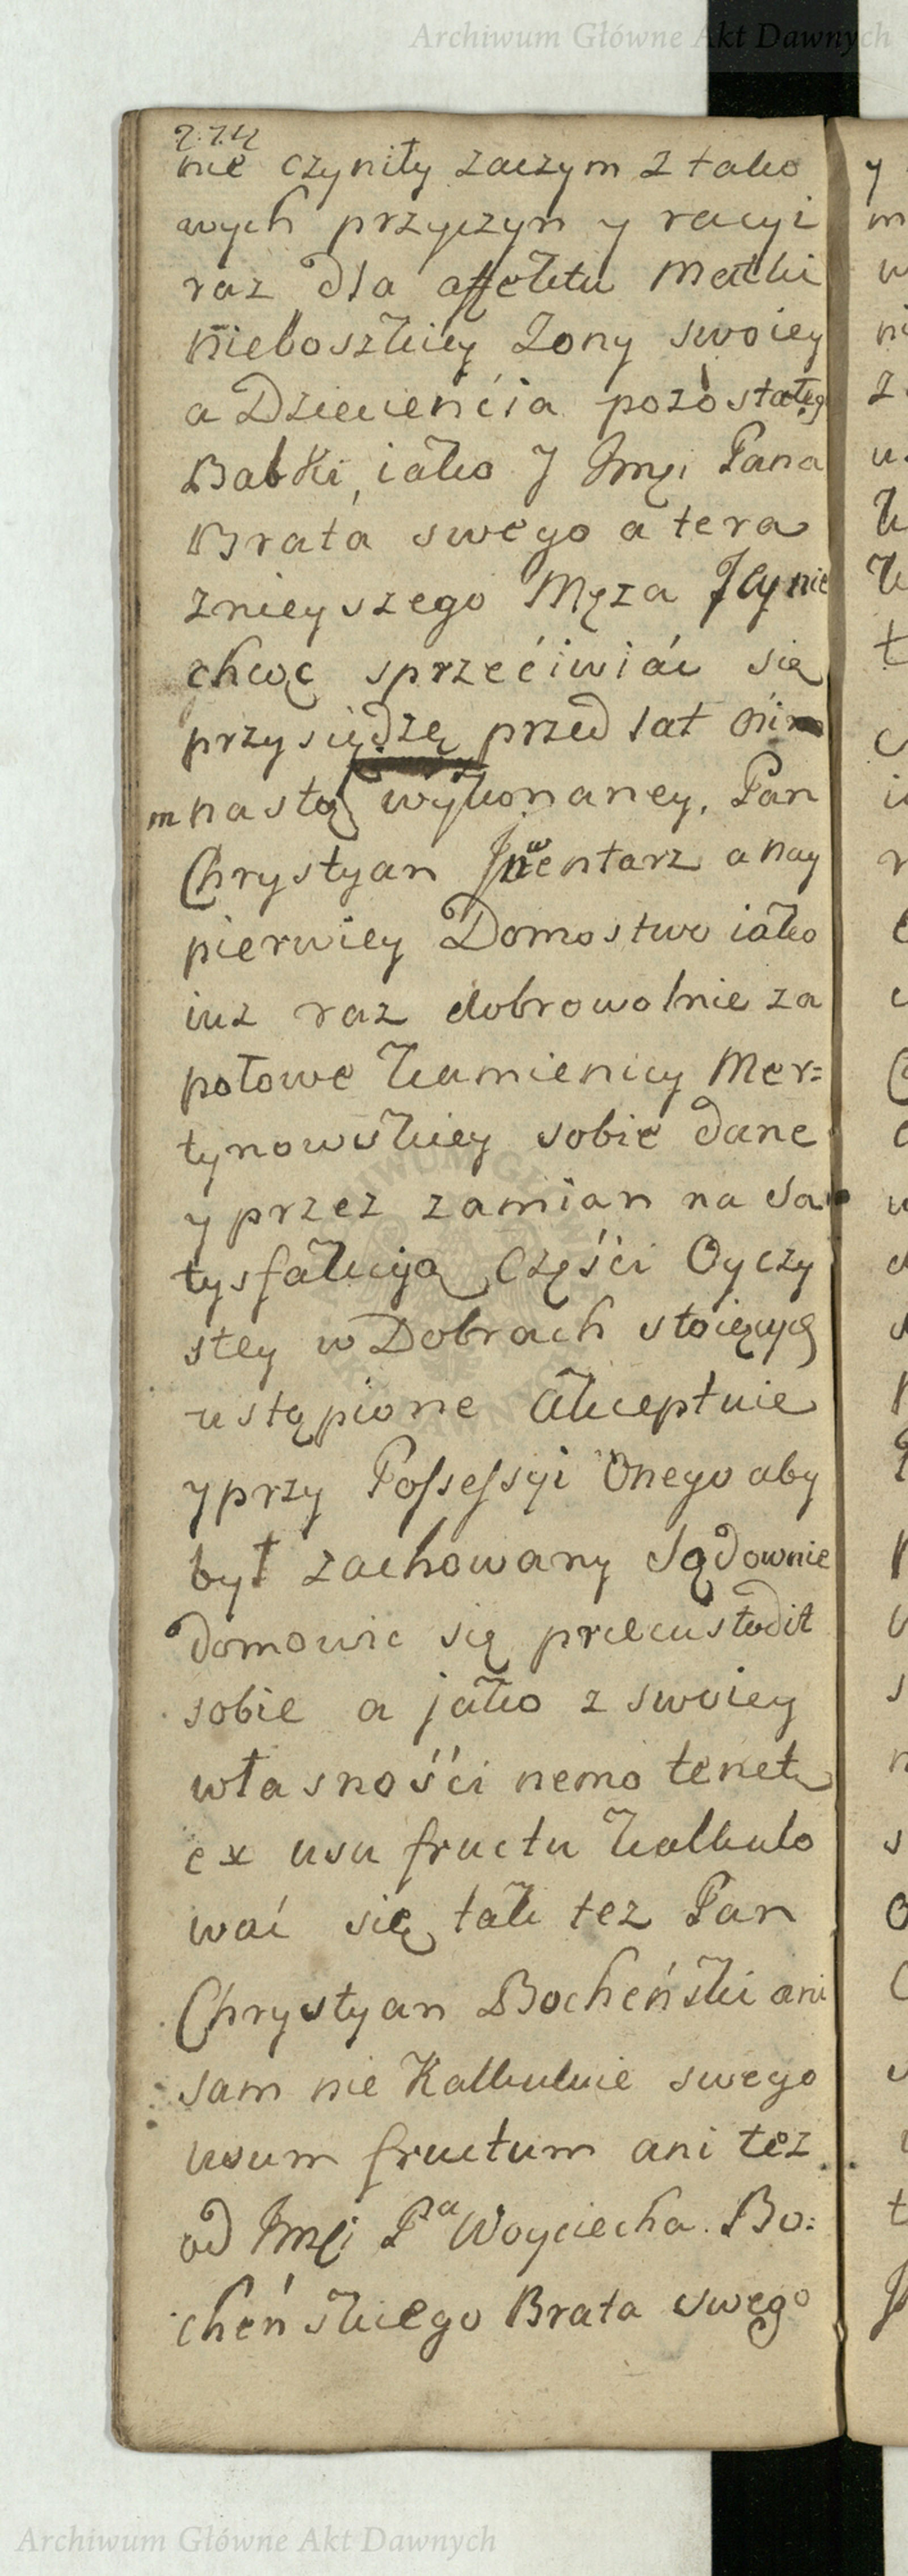 Archiwum Główne Akt Dawnych
nie czyniły zaczym z tako
wych przyczyn y racyi
raz dla affektu Matki
nieboszkiey Zony swoiey
a Dziecienćia pozostałeg
Babki, iako J Jmći Pana
Brata swego a tera
znieyszego Męza Jey nie
chcąc sprzećiwiać się
przysiędzę przed lat
nastą wykonaney, Pan
Chrystyan Jnwentarz a nay
pierwiey Domostwo iako
iuz raz dobrowolnie za
połowe kamienicy Mer=
tynowskiey sobie dane
y przez zamian na Sa
tysfakcyą Częśći Oyczy
stey w Dobrach stoiących
ustąpione Akceptuie
y przy Possessyi Onego aby
był zachowany Sądownie
domowic się praecustodit
sobie a jako z swoiey
własnośći nemo tenetur
ex usu fructu kalkulo
wać się tak tez Pan
Chrystyan Bocheński ani
sam nie Kalkuluie swego
usum fructum ani tez
od Jmći Pa Woyciecha Bo=
cheńskiego Brata swego
Archiwum Główne Akt Dawnych